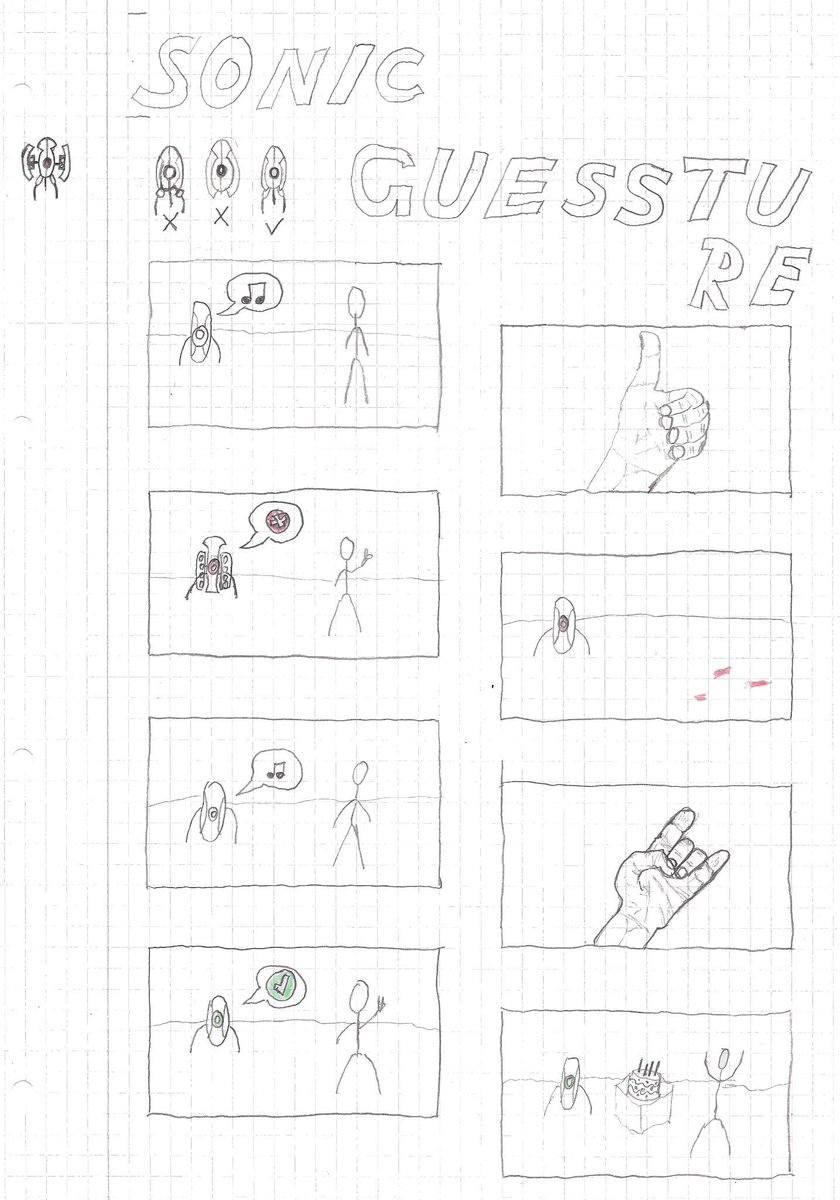 SONIC
GUESSTU
RE